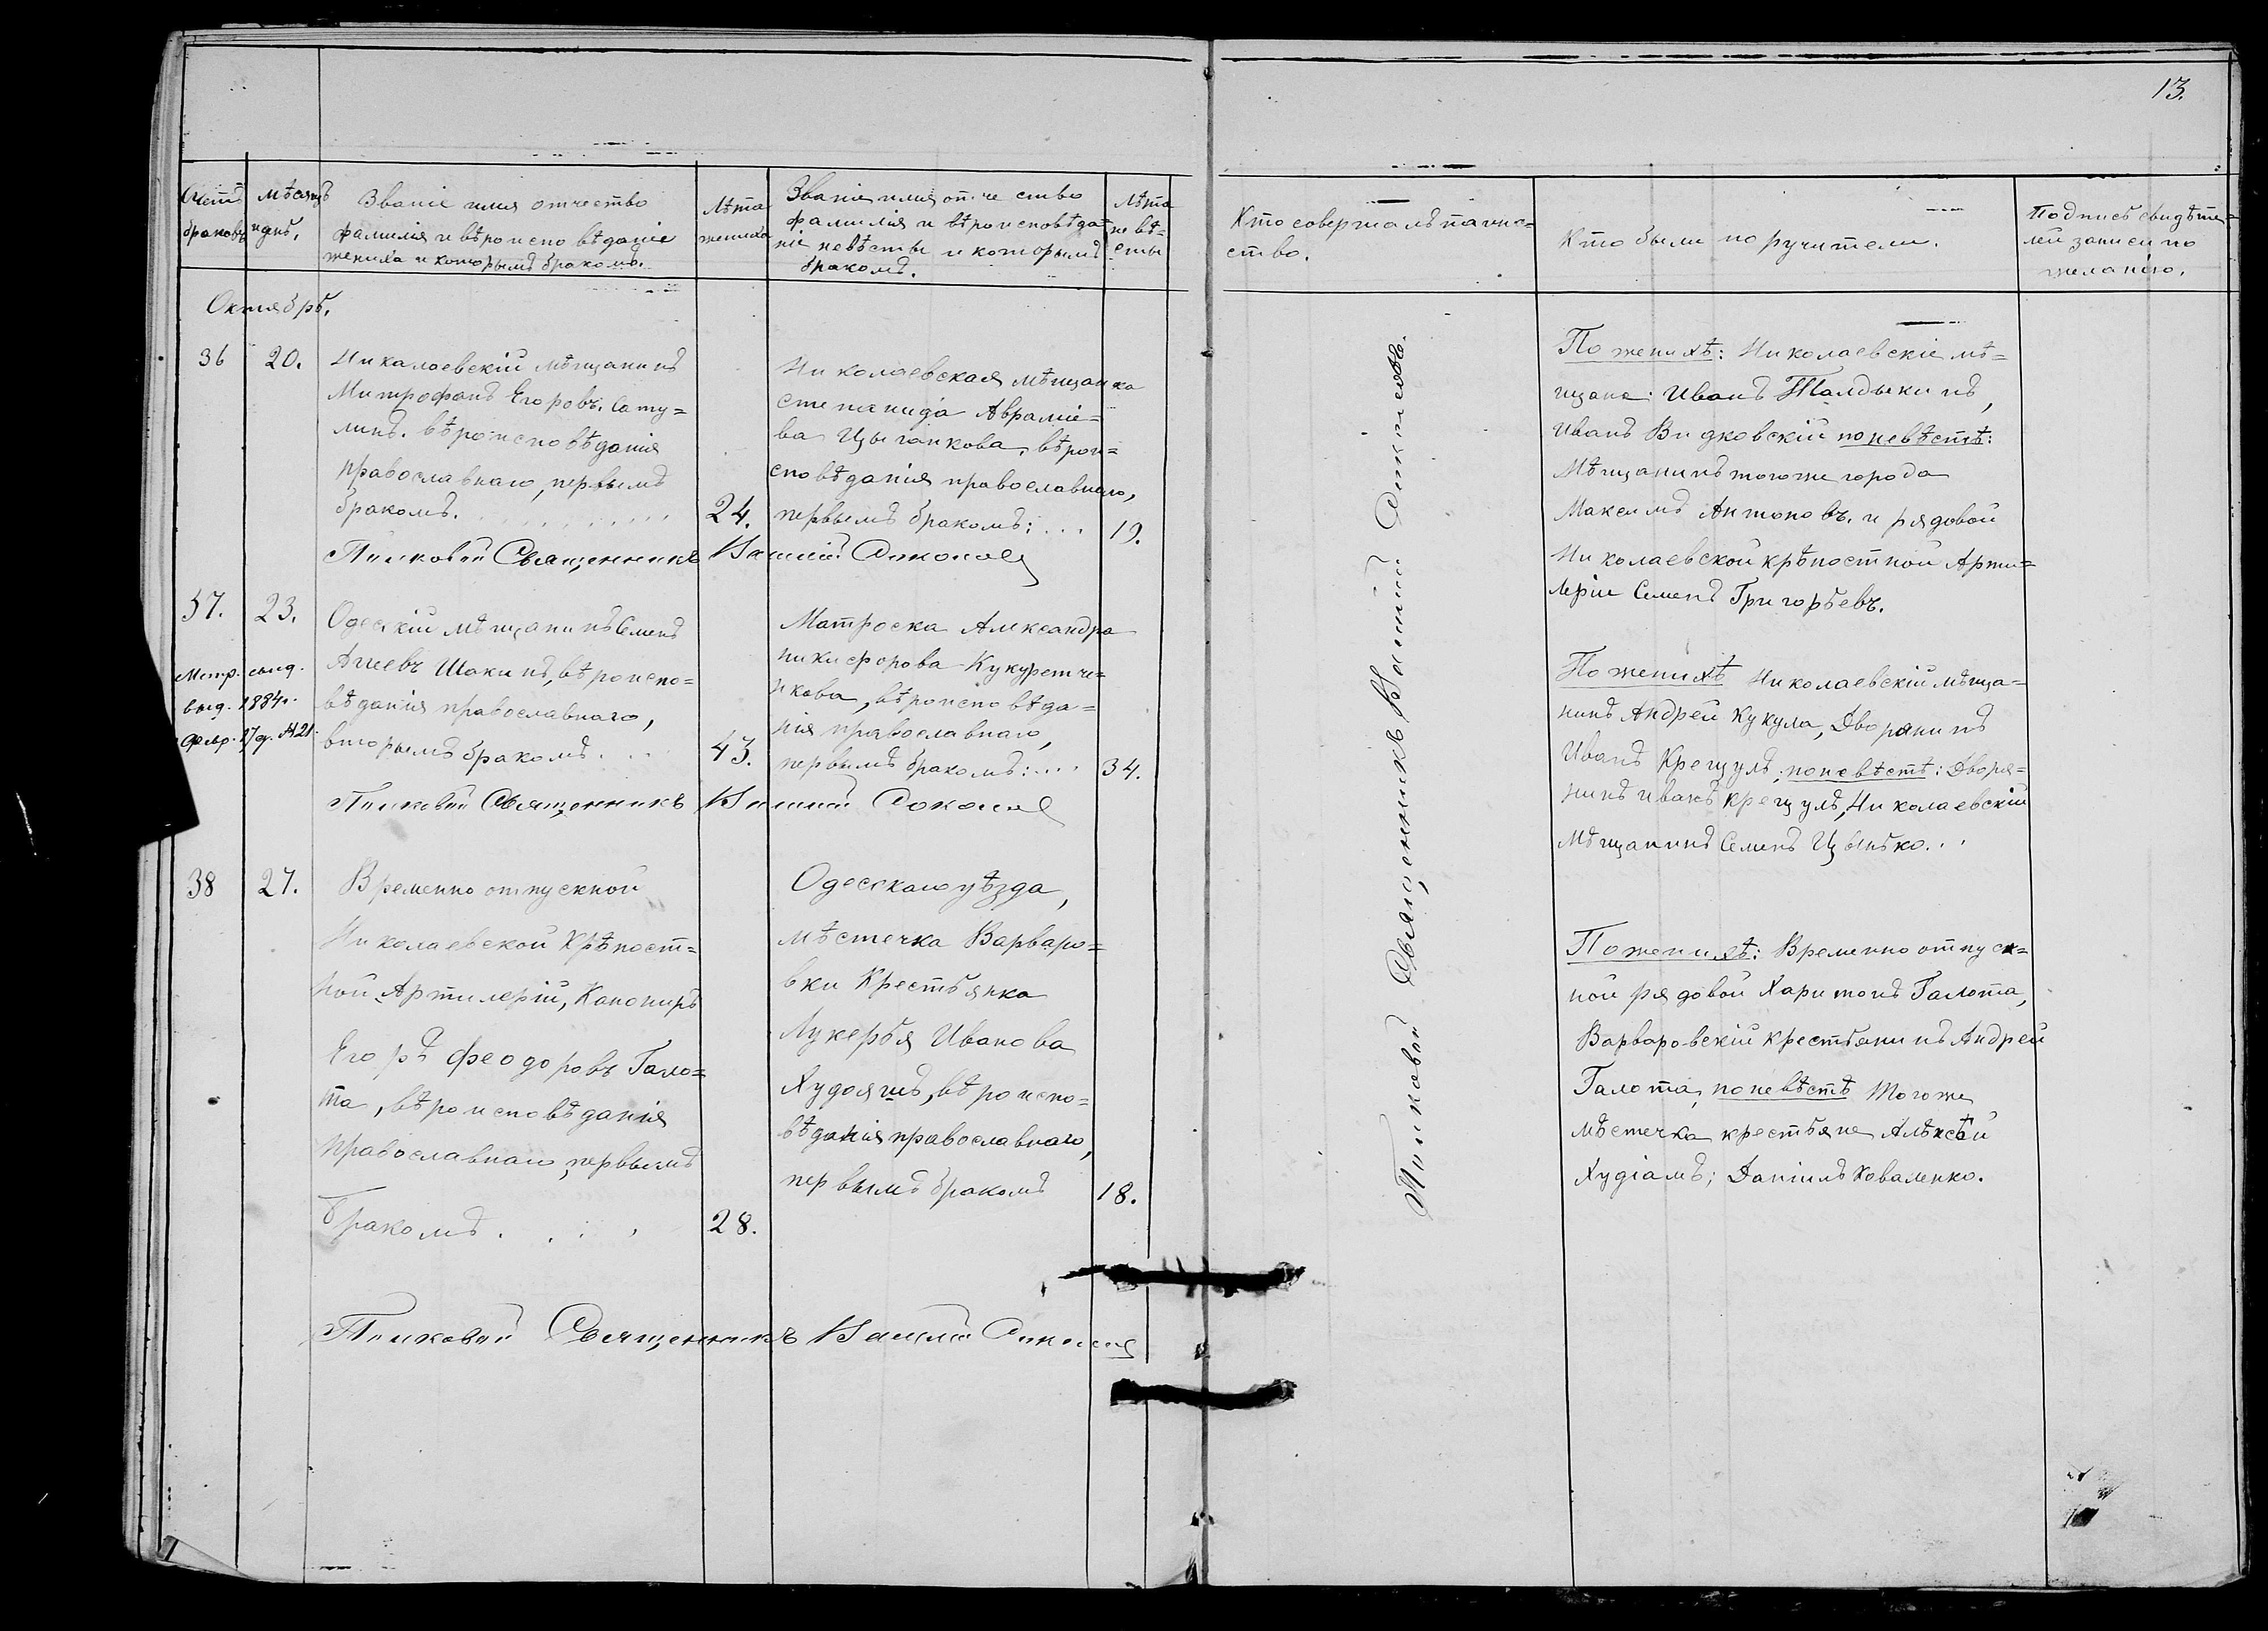 13.
Счетъ
браковъ
мѣсяцъ
и днь.
Званіе имя отчество
фамилія и вѣроисповѣданіе
жениха и которымъ бракомъ.
Лѣта
жениха
Званіе имя отчество
фамилія и вѣроисповѣда=
ніе невѣсты и которымъ
бракомъ.
Лѣта
невѣ=
сты
Кто совершалъ таинс=
ство.
Кто были поручители.
Подпись свидѣте=
лей записи по
желанію.
Октябрь.
36
20.
Николаевскій мѣщанинъ
Митрофанъ Егоровъ. Сату=
линъ. вѣроисповѣданія
православнаго, первымъ
бракомъ.
24.
Николаевская мѣщанка
Степанида Авраміе=
ва Цыганкова, вѣрои=
сповѣданія православнаго,
первымъ бракомъ: ...
19.
Полковой Священникъ Василій Соколов
По женихѣ: Николаевскіе мѣ=
щане: Иванъ Талдыкинъ,
Иванъ Видковскій по невѣстѣ:
Мѣщанинъ того же города
Максимъ Антоновъ. и рядовой
Николаевской крѣпостной Арти=
леріи Семенъ Григорьевъ.
37.
23.
Метр. свид.
выд. 1884 г.
Февр. 17 д. №21.
Одескій мѣщанинъ Семенъ
Агеевъ Шакинъ, вѣроиспо=
вѣданія православнаго,
вторымъ бракомъ. ...
43.
Матроска Александра
Никифорова Кукуретче=
нкова, вѣроисповѣда=
нія православнаго,
первымъ бракомъ: ....
34.
Полковой Священникъ Василій Соколов
По женихѣ Николаевскій мѣща=
нинъ Андрей Кукула, Дворянинъ
Иванъ Крецулъ; по невѣстѣ: Дворя=
нинъ Иванъ Крецулъ, Николаевскій
мѣщанинъ Семенъ Цынько. ..
38
27.
Временно отпускной
Николаевской Крѣпост=
ной Артилеріи, Канониръ
Егоръ Феодоровъ Гало=
та, вѣроисповѣданія
православнаго, первымъ
Бракомъ. . . .
28.
Одесскаго уѣзда,
мѣстечка Варваро=
вки Крестьянка
Лукерья Иванова
Худоямъ, вѣроиспо=
вѣданія православнаго,
первымъ бракомъ
18.
Полковой Священникъ Василій Соколов
По женихѣ: Временно отпуск=
ной рядовой Харитонъ Галота,
Варваровскій крестьянинъ Андрей
Галота, по невѣстѣ Того же
мѣстечка крестьяне Алѣксѣй
Худіамъ; Даніилъ Коваленко.
Полковой Священникъ Василій Соколовъ.